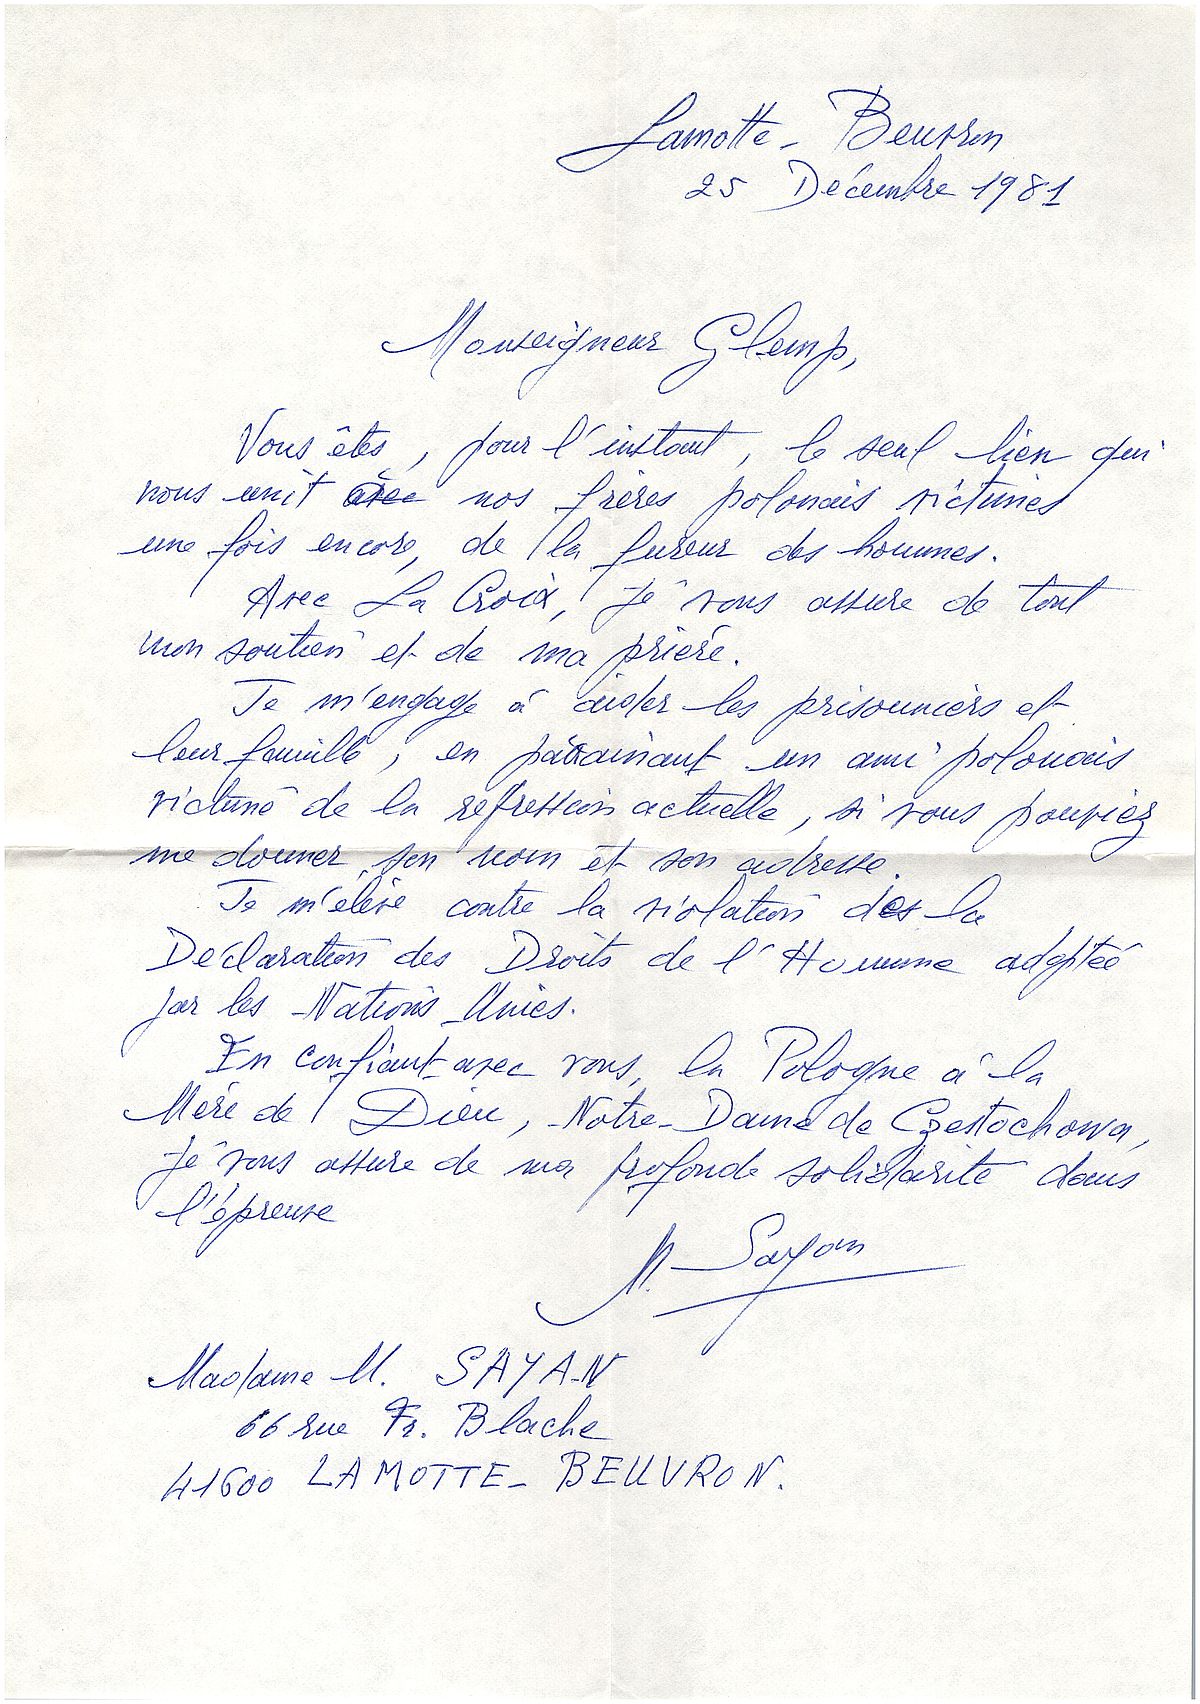 Lamotte-Beuvron
25 Décembre 1981
Monseigneur Glemp,
Vous êtes, pour l'instant, le seul lien qui
nous unit avec nos frères polonais victimes
une fois encore, de la fureur des hommes.
Avec La Croix, je vous assure de tout
mon soutien et de ma prière.
Je m'engage à aider les prisonniers et
leur famille, en parrainant un ami polonais
victime de la répression actuelle, si vous pouviez
me donner son nom et son adresse.
Je m'élève contre la violation des la
Déclaration des Droits de l'Homme adoptée
par les Nations Unies.
En confiant avec vous, la Pologne à la
Mère de Dieu, Notre-Dame de Czestochowa,
je vous assure de ma profonde solidarité dans
l'épreuve
M. Sayan
Madame M. SAYAN
66 rue Fr. Blache
41600 LAMOTTE-BEUVRON.